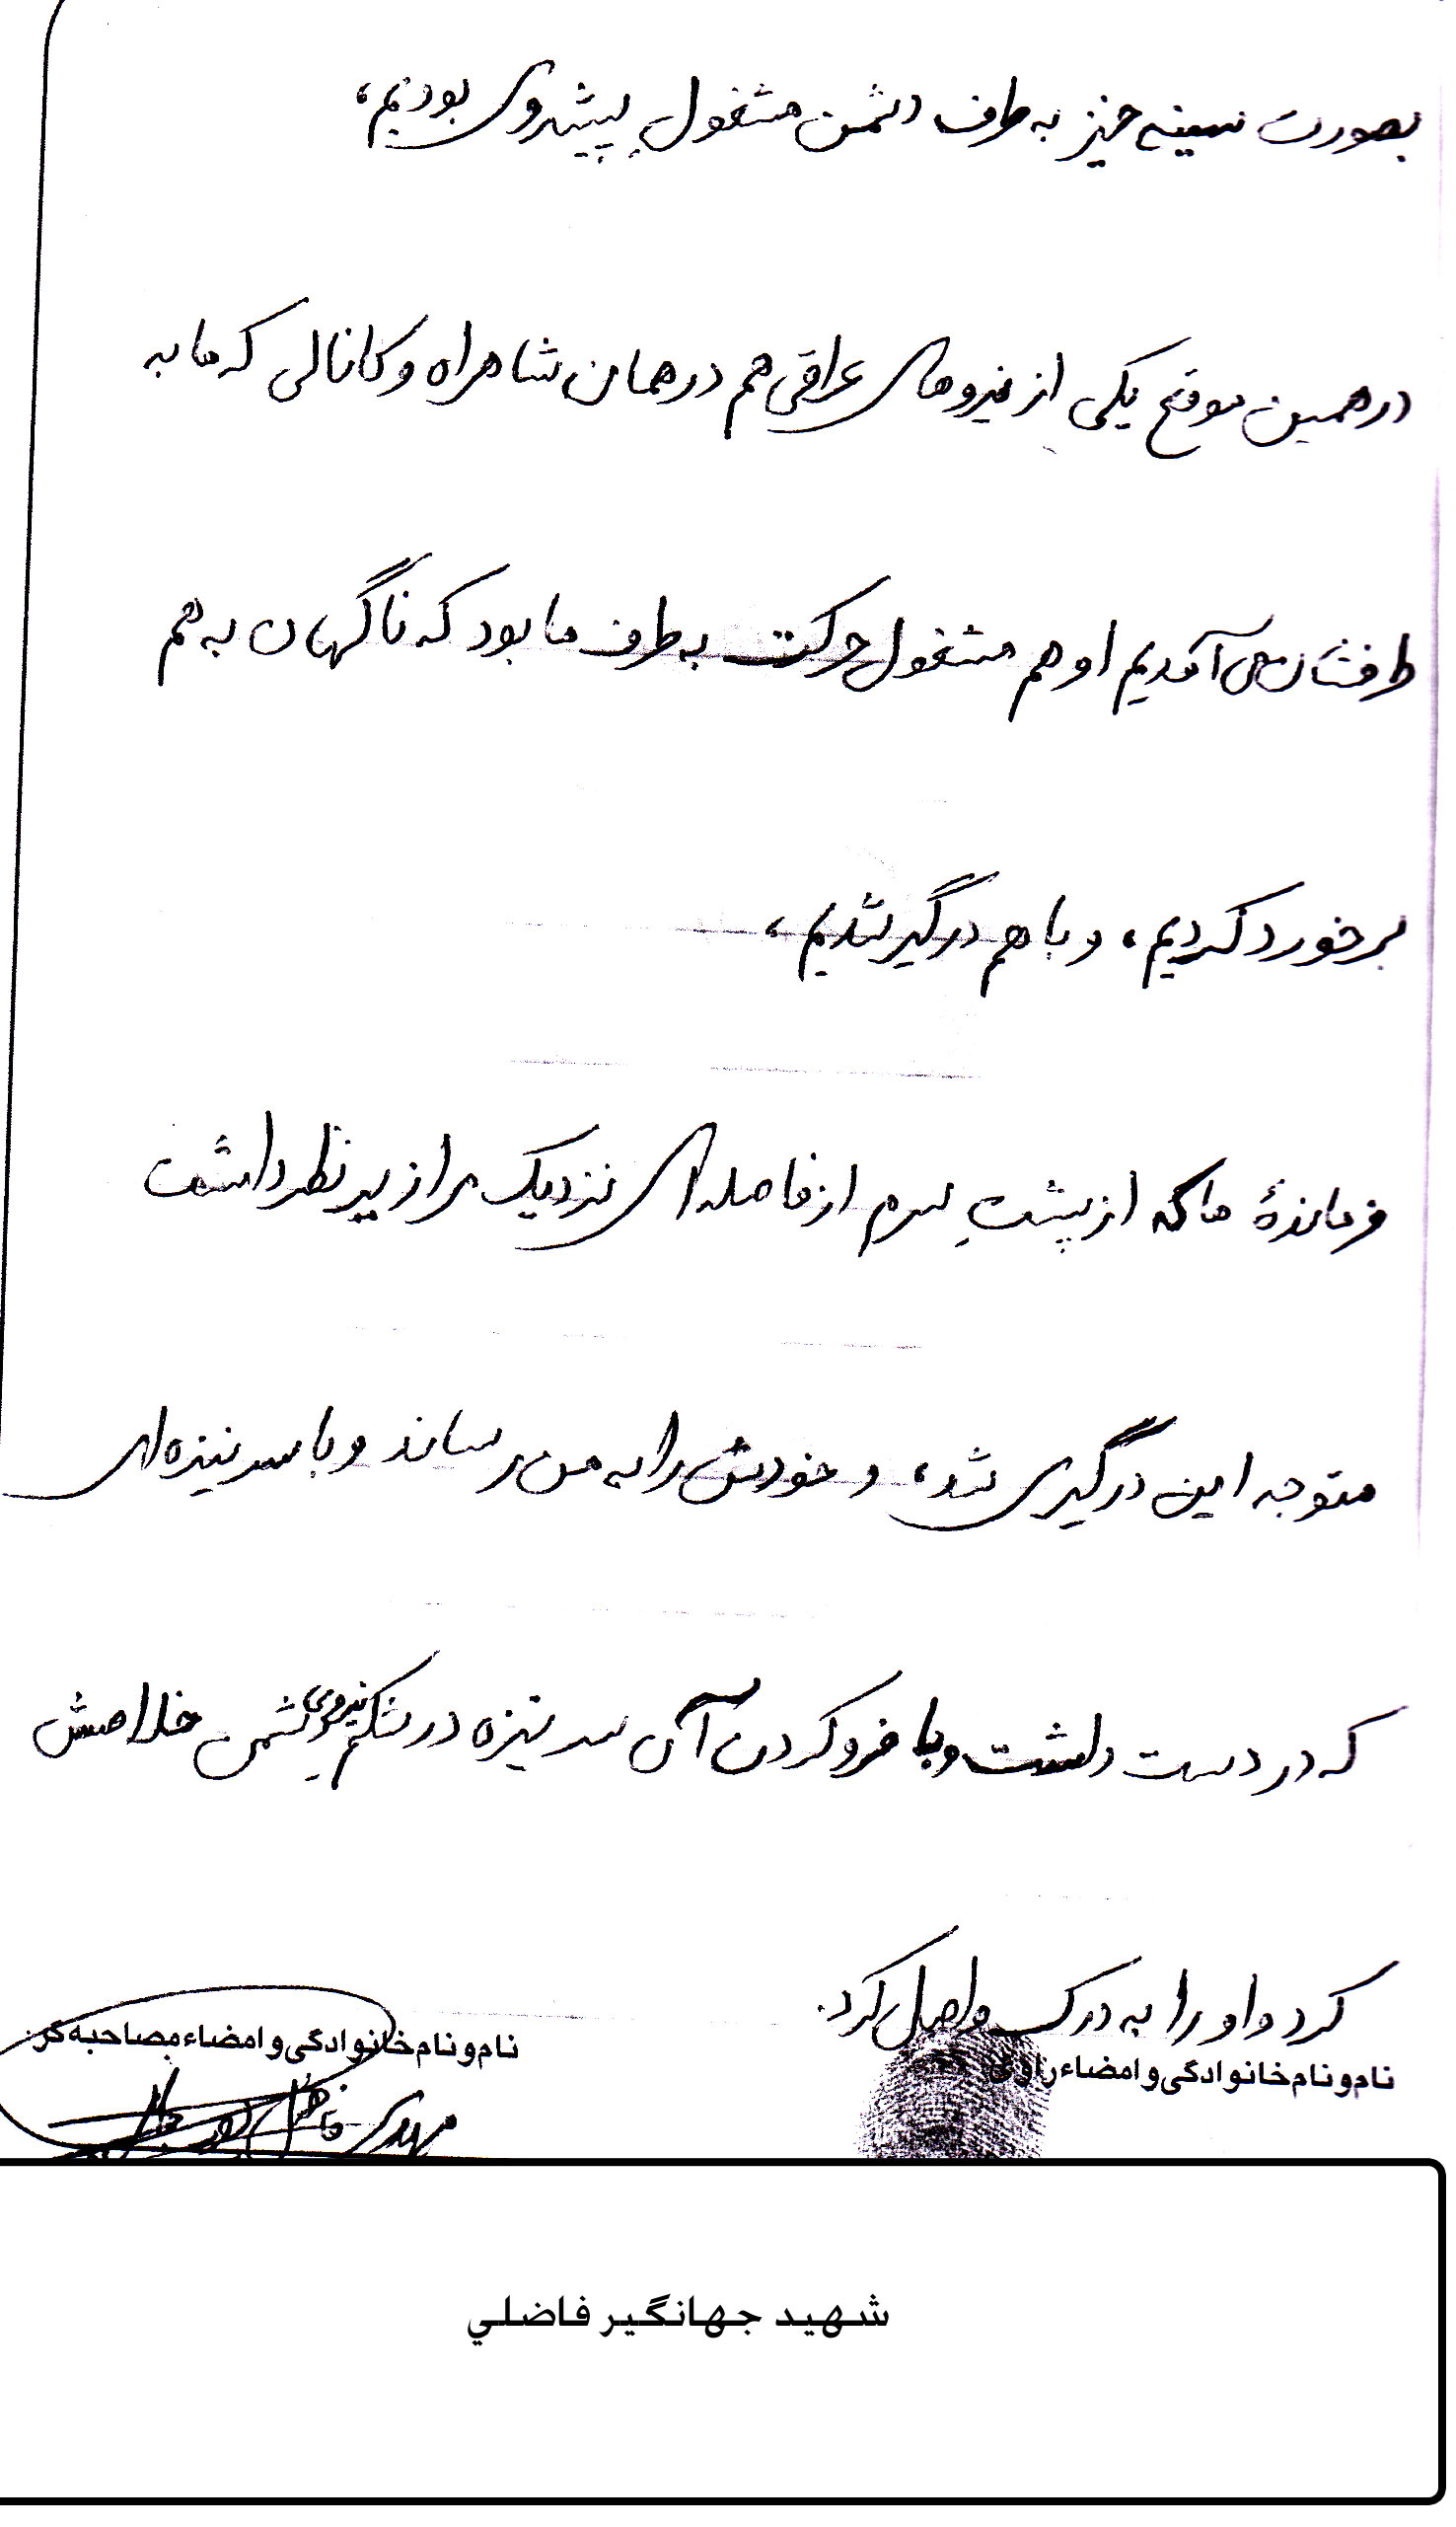 بصورت سینه خیز به طرف دشمن مشغولِ پیشروی بودیم،
درهمین موقع یکی از نیروهای عراقی هم درهمان شاهراه و کانالی که ما به
طرفشان می آمدیم او هم مشغول حرکت به طرف ما بود که ناگهان به هم
برخورد کردیم، و با هم درگیر شدیم،
فرماندهٔ ما که از پشتِ سرم از فاصله ای نزدیک مرا زیر نظر داشت
متوجه این درگیری شد، و خودش را به من رساند و با سرنیزه ای
که در دست داشت و با فرو کردن آن سرنیزه در شکم نیروی دشمن خلاصش
کرد و او را به درک واصل کرد.
نام و نام خانوادگی و امضاء راوی
نام و نام خانوادگی و امضاء مصاحبه گر:
مهدی
شهيد جهانگير فاضلي